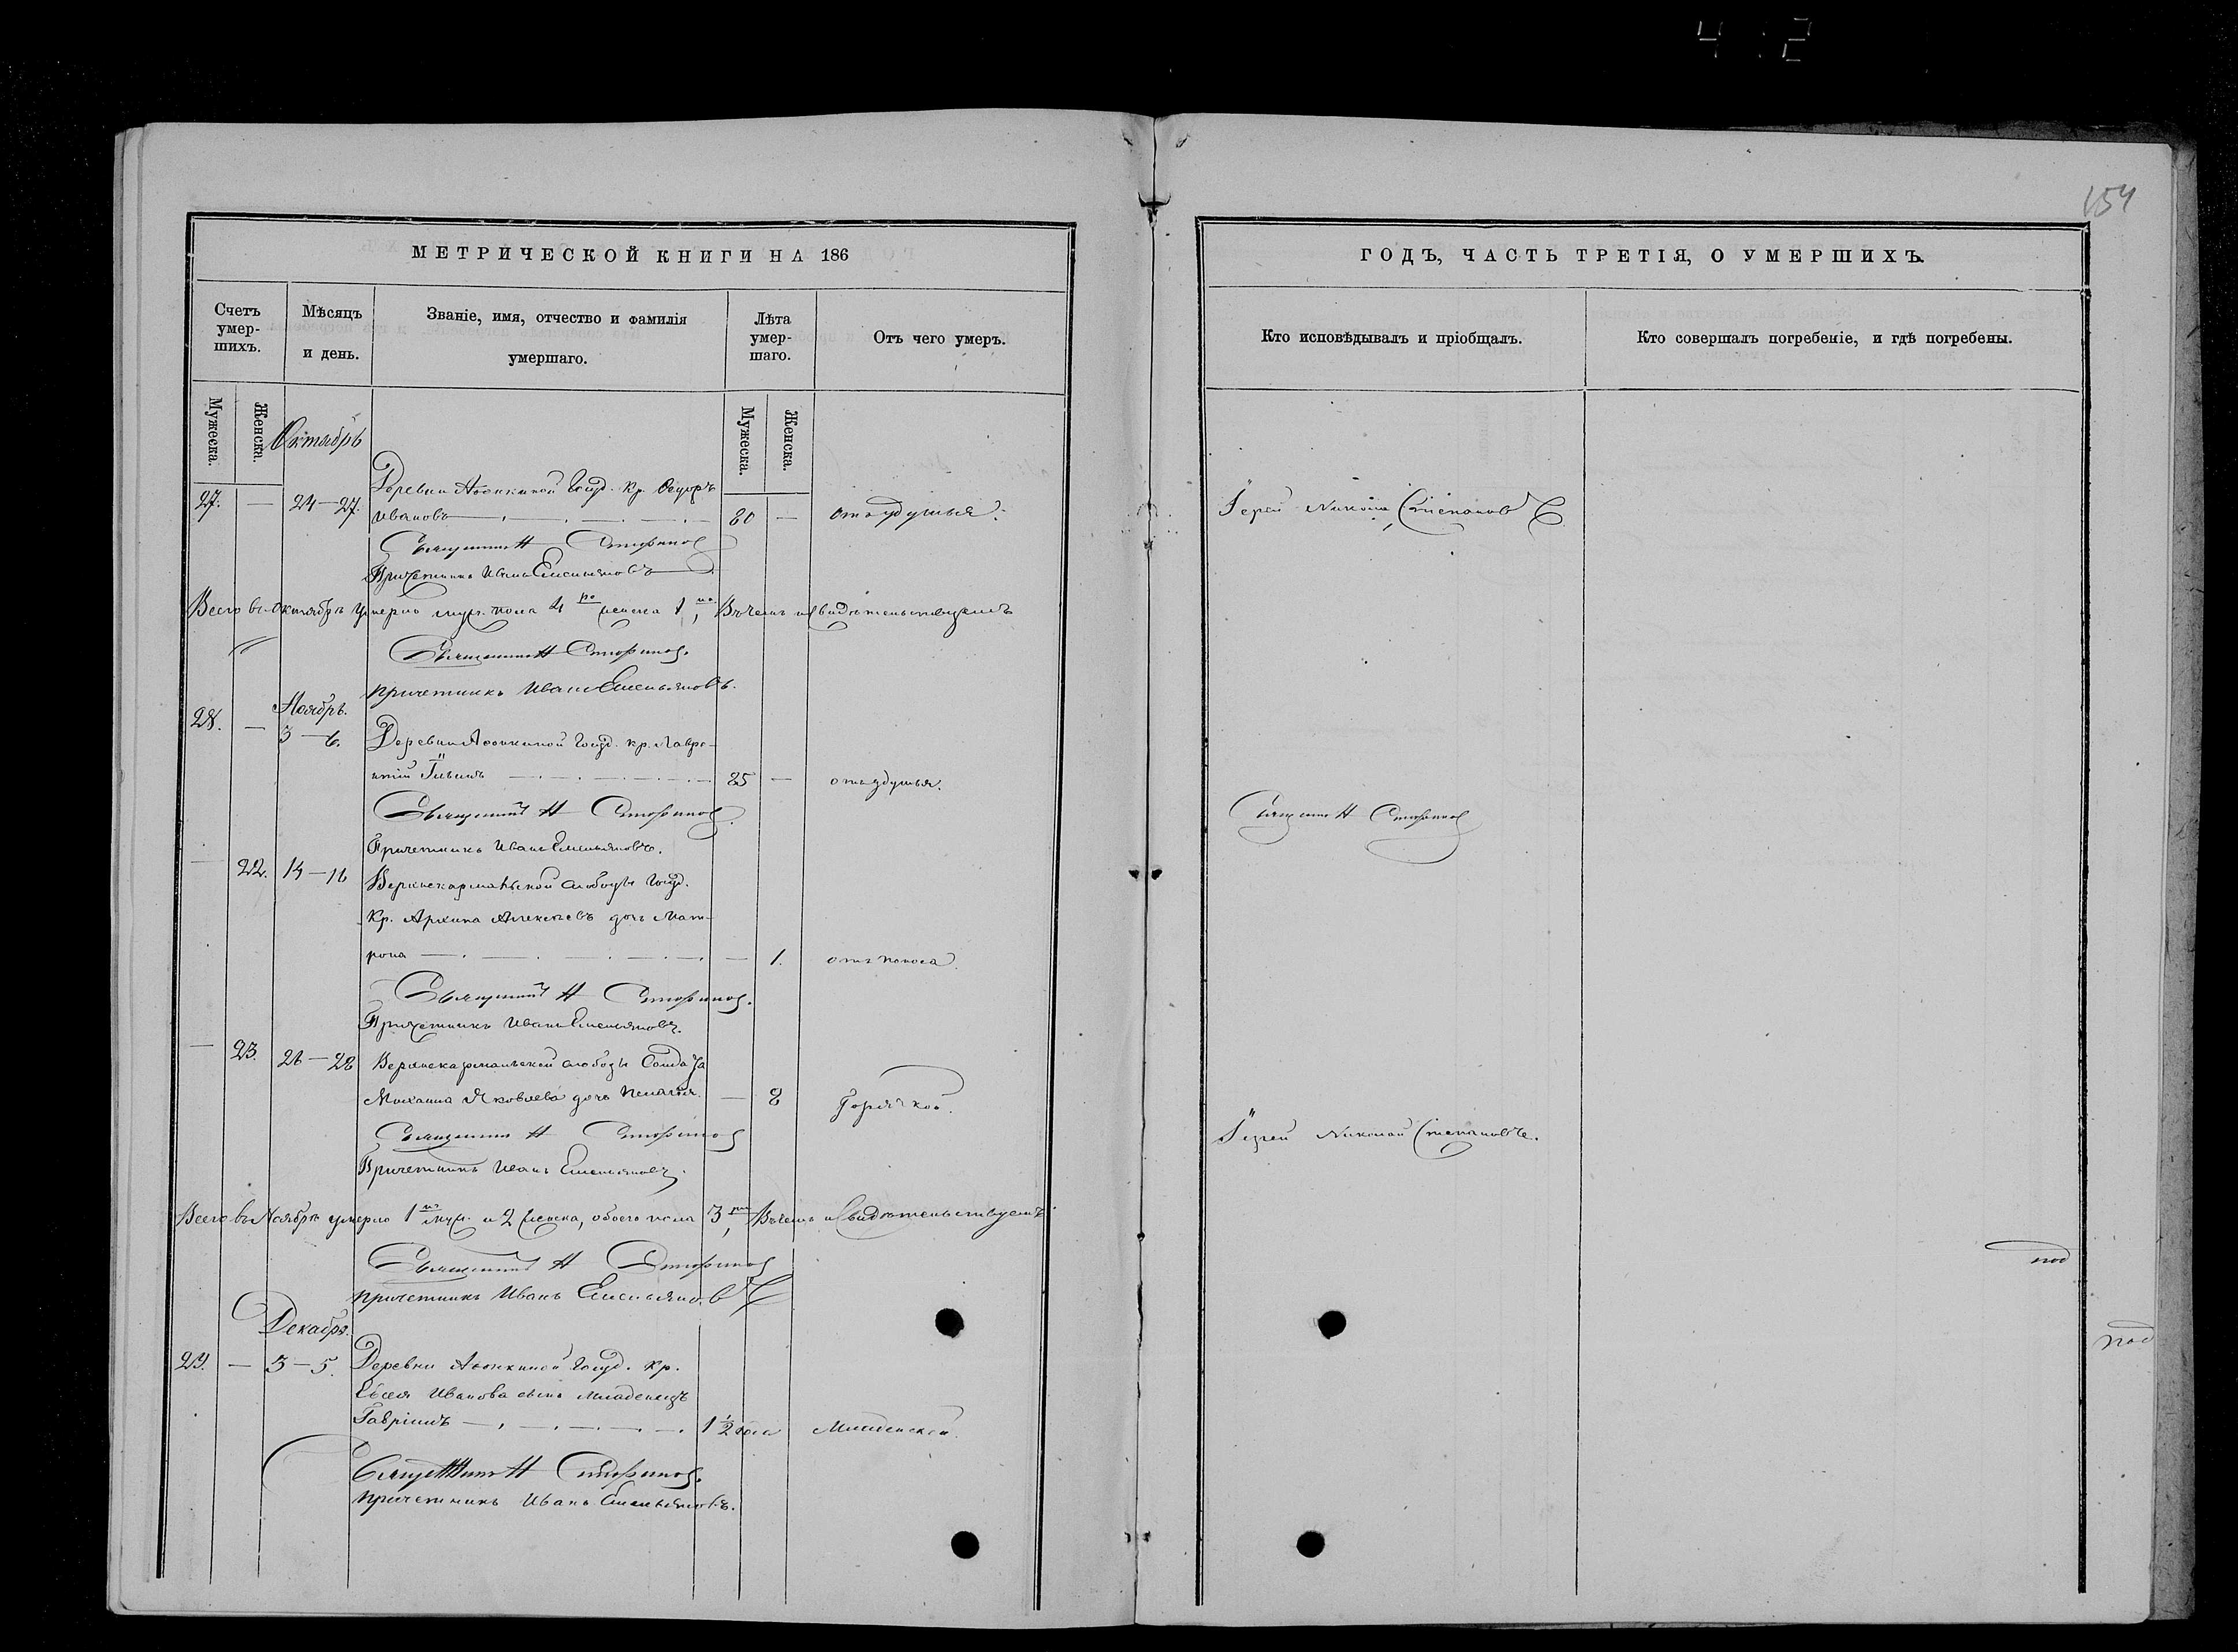 154
МЕТРИЧЕСКОЙ КНИГИ НА 186
ГОДЪ, ЧАСТЬ ТРЕТІЯ, О УМЕРШИХЪ.
Счетъ умер-шихъ.
Мѣсяцъ и день.
Званіе, имя, отчество и фамилія умершаго.
Лѣта умер-шаго.
Отъ чего умеръ.
Кто исповѣдывалъ и пріобщалъ.
Кто совершалъ погребеніе, и гдѣ погребены.
Мужеска.
Женска.
Мужеска.
Женска.
Октябрь
27. — 24—27. Деревни Госуд. кр. Ѳедоръ
Ивановъ — 80 — отъ удушья.
Іерей Николай Степановъ
Священникъ Н
Причетникъ Иванъ Емельяновъ
Всего въ Октябрѣ умерло муж. пола 4 женска 1, Въ чемъ и свидѣтельствуемъ
Священникъ Н
Причетникъ Иванъ Емельяновъ.
Ноябрь.
28. — 3—6. Деревни Госуд. кр. Лавре-
нтій — 85 — отъ удушья.
Священникъ Н
Священникъ Н
Причетникъ Иванъ Емельяновъ.
— 22. 14—16 слободы Госуд.
Кр. Архипа Алексѣевъ дочь Мат-
рона — 1. отъ поноса.
Священникъ Н
Причетникъ Иванъ Емельяновъ.
— 23. 26—28 слободы Солдата
Михаила Яковлева дочь Пелагія. — 8 Горячкой.
Іерей Николай Степановъ.
Священникъ Н
Причетникъ Иванъ Емельяновъ.
Всего въ Ноябрѣ умерло 1 муж. и 2 женска, обоего пола 3, Въ чемъ и Свидѣтельствуемъ
Священникъ Н
Причетникъ Иванъ Емельяновъ
Декабрь.
29. — 3—5. Деревни Госуд. кр.
Евсея Иванова сынъ младенецъ
Гавріилъ — 1 1/2 года Младенской.
Священникъ Н
Причетникъ Иванъ Емельяновъ.